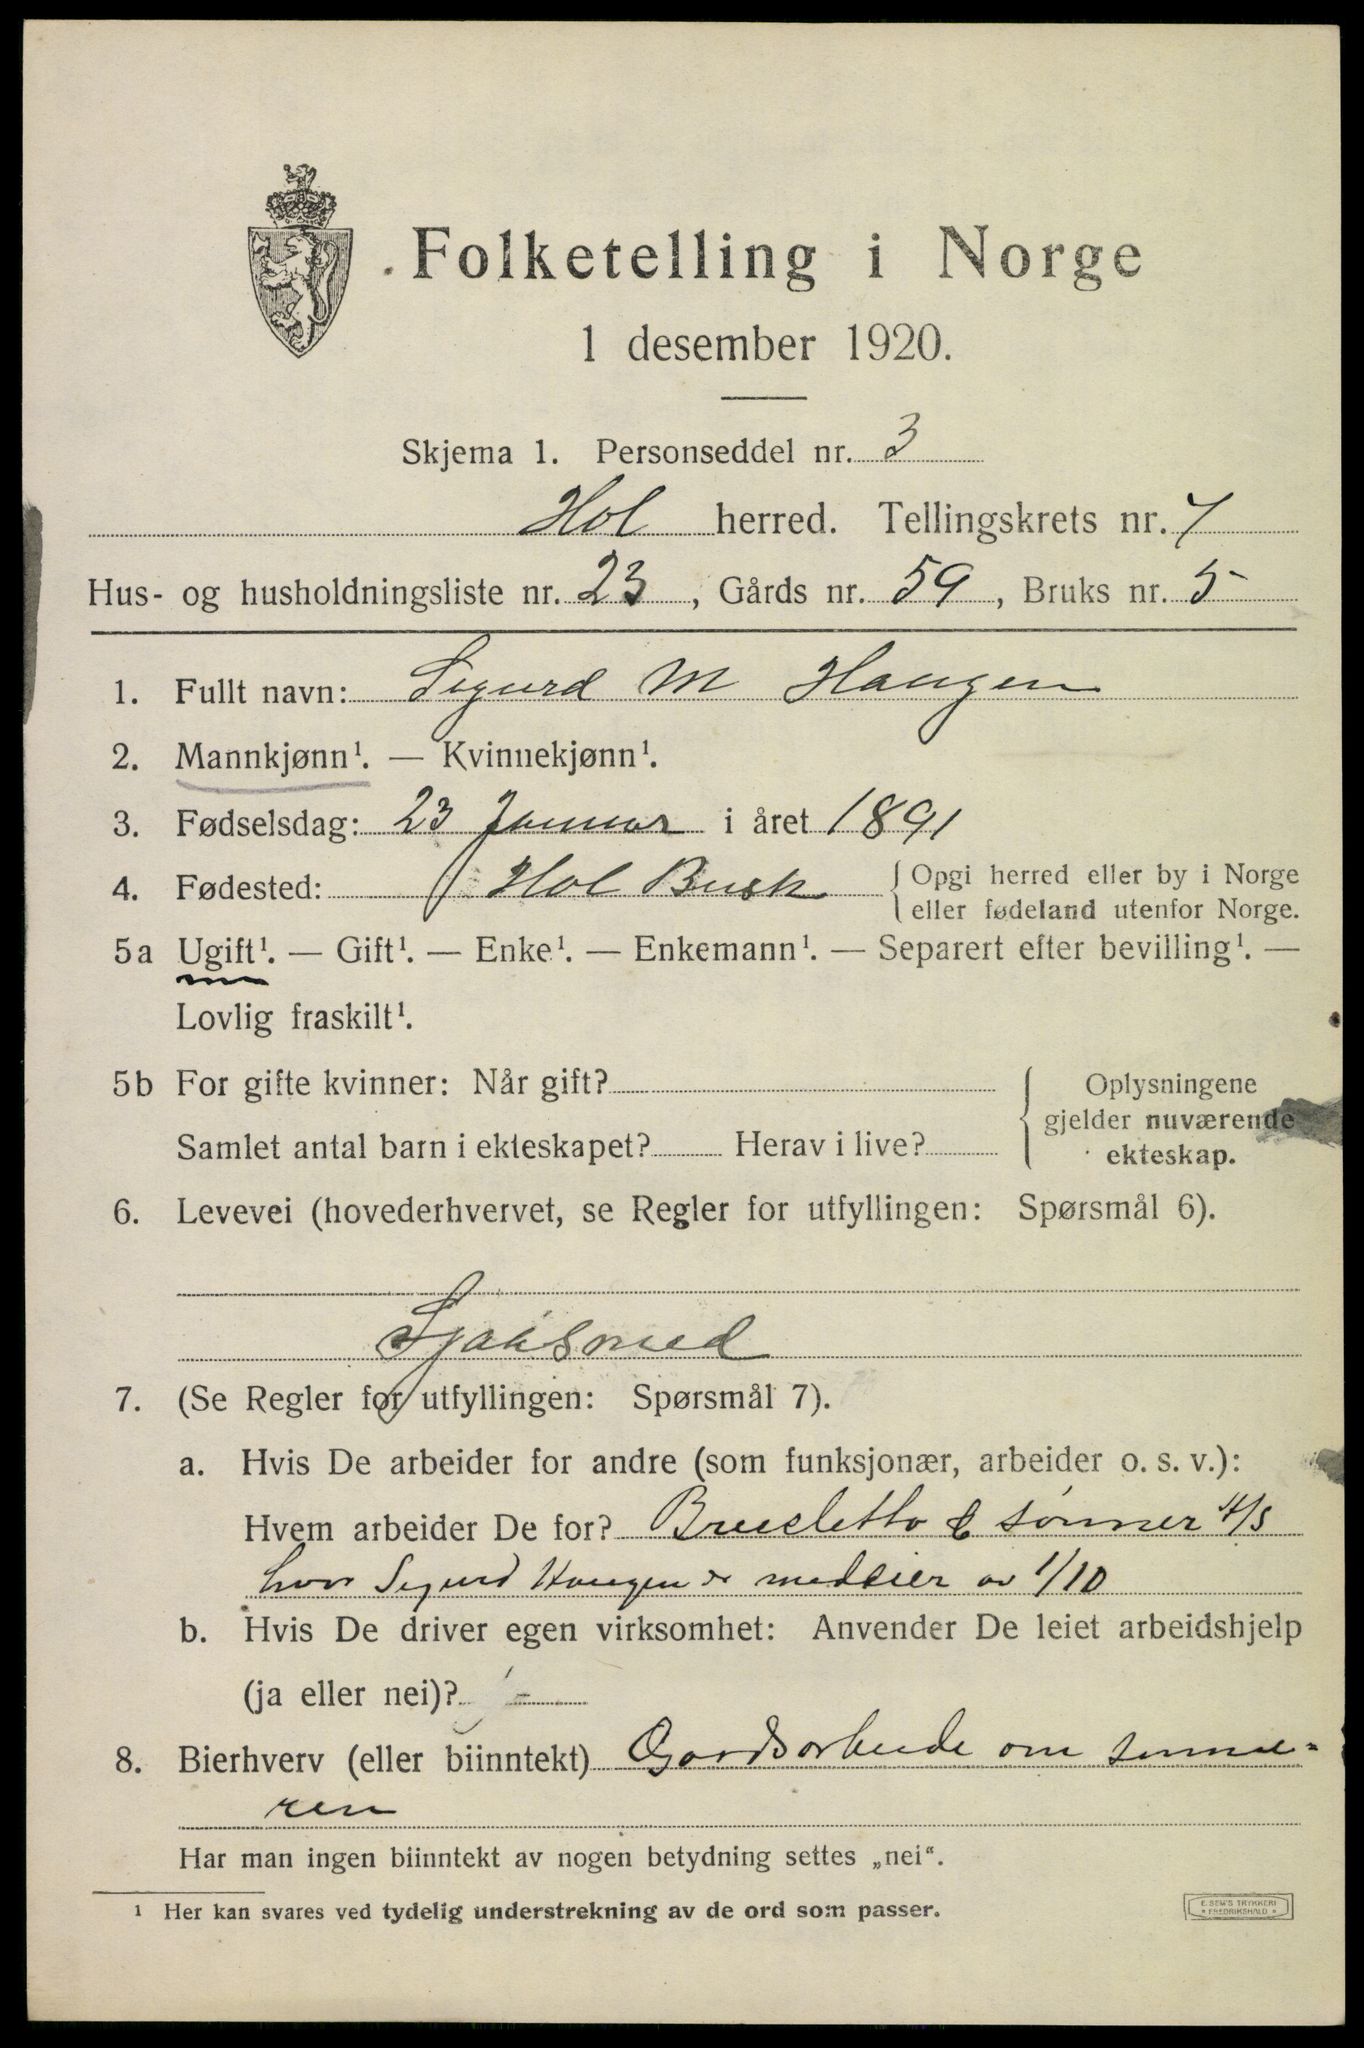 Folketelling i Norge
1 desember 1920.
Skjema 1. Personseddel nr. 3
Hol herred. Tellingskrets nr. 7
Hus- og husholdningsliste nr. 23, Gårds nr. 59, Bruks nr. 5
1. Fullt navn: Sigurd M Haugen
2. Mannkjønn¹. — Kvinnekjønn¹.
3. Fødselsdag: 23 Januar i året 1891
4. Fødested: Hol Busk { Opgi herred eller by i Norge
eller fødeland utenfor Norge.
5a Ugift¹. — Gift¹. — Enke¹. — Enkemann¹. — Separert efter bevilling¹. —
Lovlig fraskilt¹.
5b For gifte kvinner: Når gift? Oplysningene
gjelder nuværende
Samlet antal barn i ekteskapet? Herav i live? ekteskap.
6. Levevei (hovederhvervet, se Regler for utfyllingen: Spørsmål 6).
7. (Se Regler for utfyllingen: Spørsmål 7).
a. Hvis De arbeider for andre (som funksjonær, arbeider o. s. v.):
Hvem arbeider De for? Brusletto & sønner A/S
hvor Sigurd Haugen er medeier av 1/10
b. Hvis De driver egen virksomhet: Anvender De leiet arbeidshjelp
(ja eller nei)? -
8. Bierhverv (eller biinntekt) Gaardsarbeide om somme=
ren
Har man ingen biinntekt av nogen betydning settes „nei“.
¹ Her kan svares ved tydelig understrekning av de ord som passer.
E. SEM'S TRYKKERI
* FREDRIKSHALD *